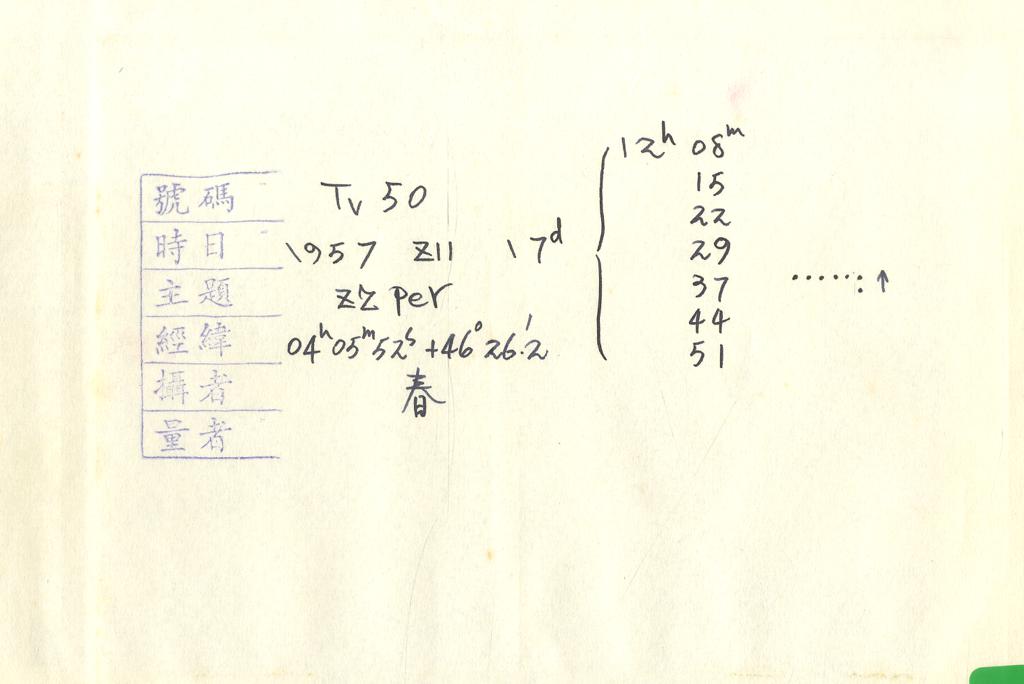 12h 08m
15
22
29
37 ......: ↑
44
51
號碼 Tv 50
時日 1957 XII 17d
主題 ZZ per
經緯 04h05m52s +46°26.'2
攝者 春
量者